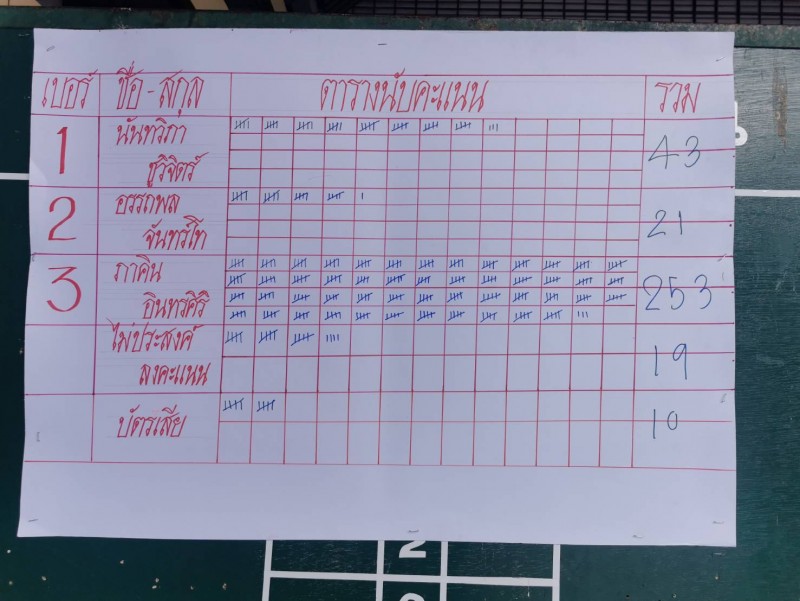 เบอร์ ชื่อ - สกุล ตารางนับคะแนน รวม
1 นันทวิภา
ชูวิจิตร์ 43
2 อรรถพล
จันทร์โท 21
3 ภาคิน
อินทรศิริ 253
ไม่ประสงค์
ลงคะแนน 19
บัตรเสีย 10
2